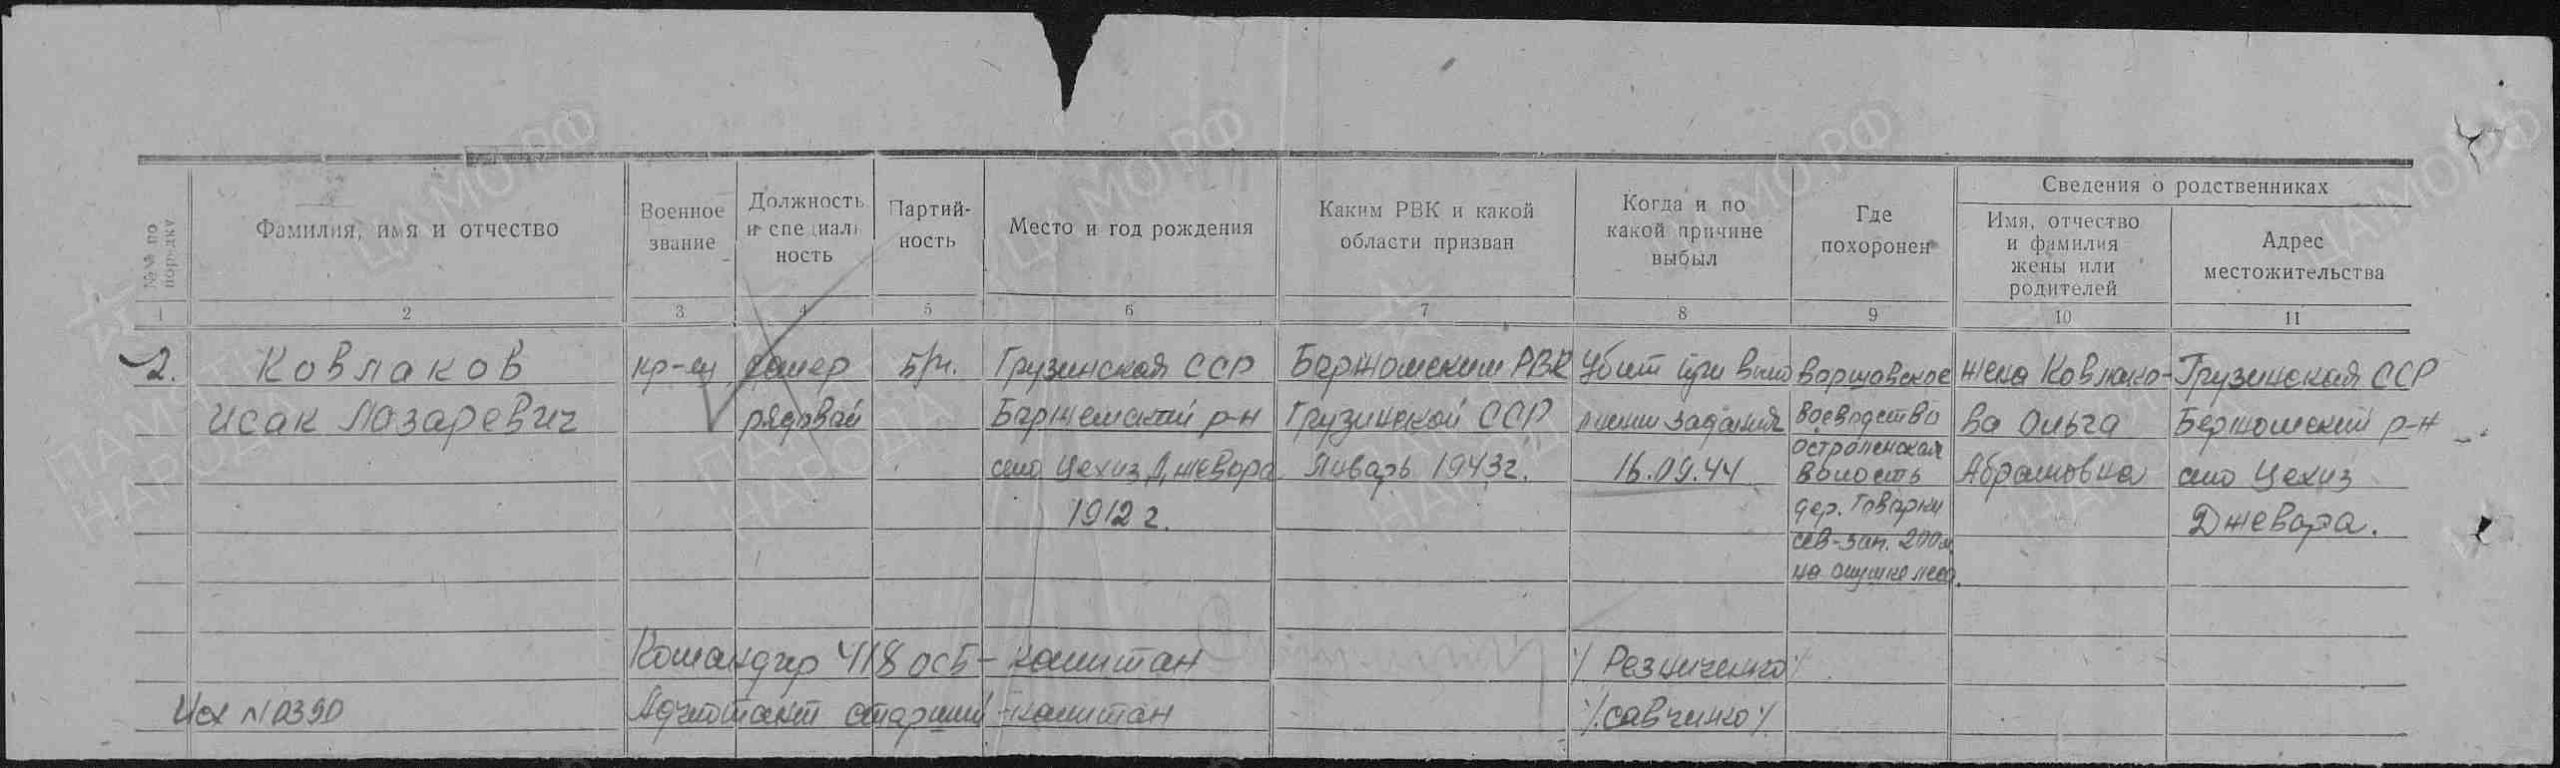 Сведения о родственниках
№№ по порядку
Фамилия, имя и отчество
Военное звание
Должность и специальность
Партий-
ность
Место и год рождения
Каким РВК и какой
области призван
Когда и по
какой причине
выбыл
Где
похоронен
Имя, отчество
и фамилия
жены или
родителей
Адрес
местожительства
1 2 3 4 5 6 7 8 9 10 11
2.
Ковлаков
Исак Лазаревич
кр-ец
сапер
рядовой
б/п.
Грузинская ССР
Боржомский р-н
село Цехиз Джевора
1912 г.
Боржомским РВК
Грузинской ССР
Январь 1943г.
Убит при выпо
лнении задания
16.09.44
Варшавское
воеводство
волость
дер.
сев-зап. 200м
на опушке леса.
жена Ковлако-
ва Ольга
Абрамовна
Грузинская ССР
Боржомский р-н
село Цехиз
Джевора.
Командир 418 осб - капитан /Резниченко/
Адъютант старший - капитан /Савченко/
Исх N 0390
ЦАМО РФ
ПАМЯТЬ
НАРОДА